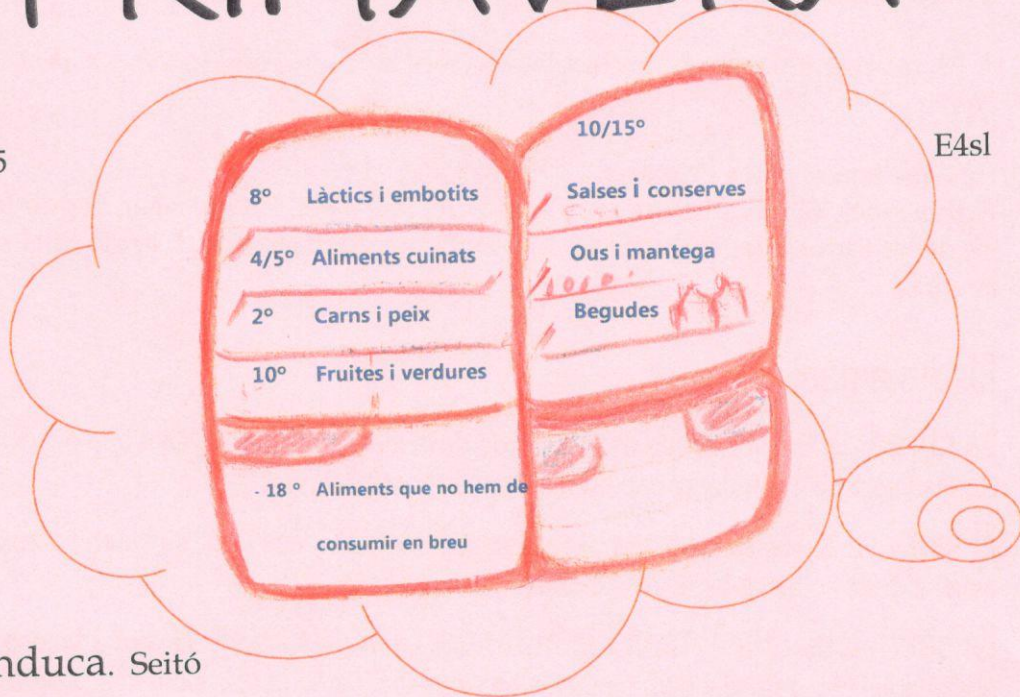 PRIMAVERA
5
E4sl
8º Làctics i embotits
4/5º Aliments cuinats
2º Carns i peix
10º Fruites i verdures
- 18 º Aliments que no hem de
consumir en breu
10/15º
Salses i conserves
Ous i mantega
Begudes
nduca. Seitó